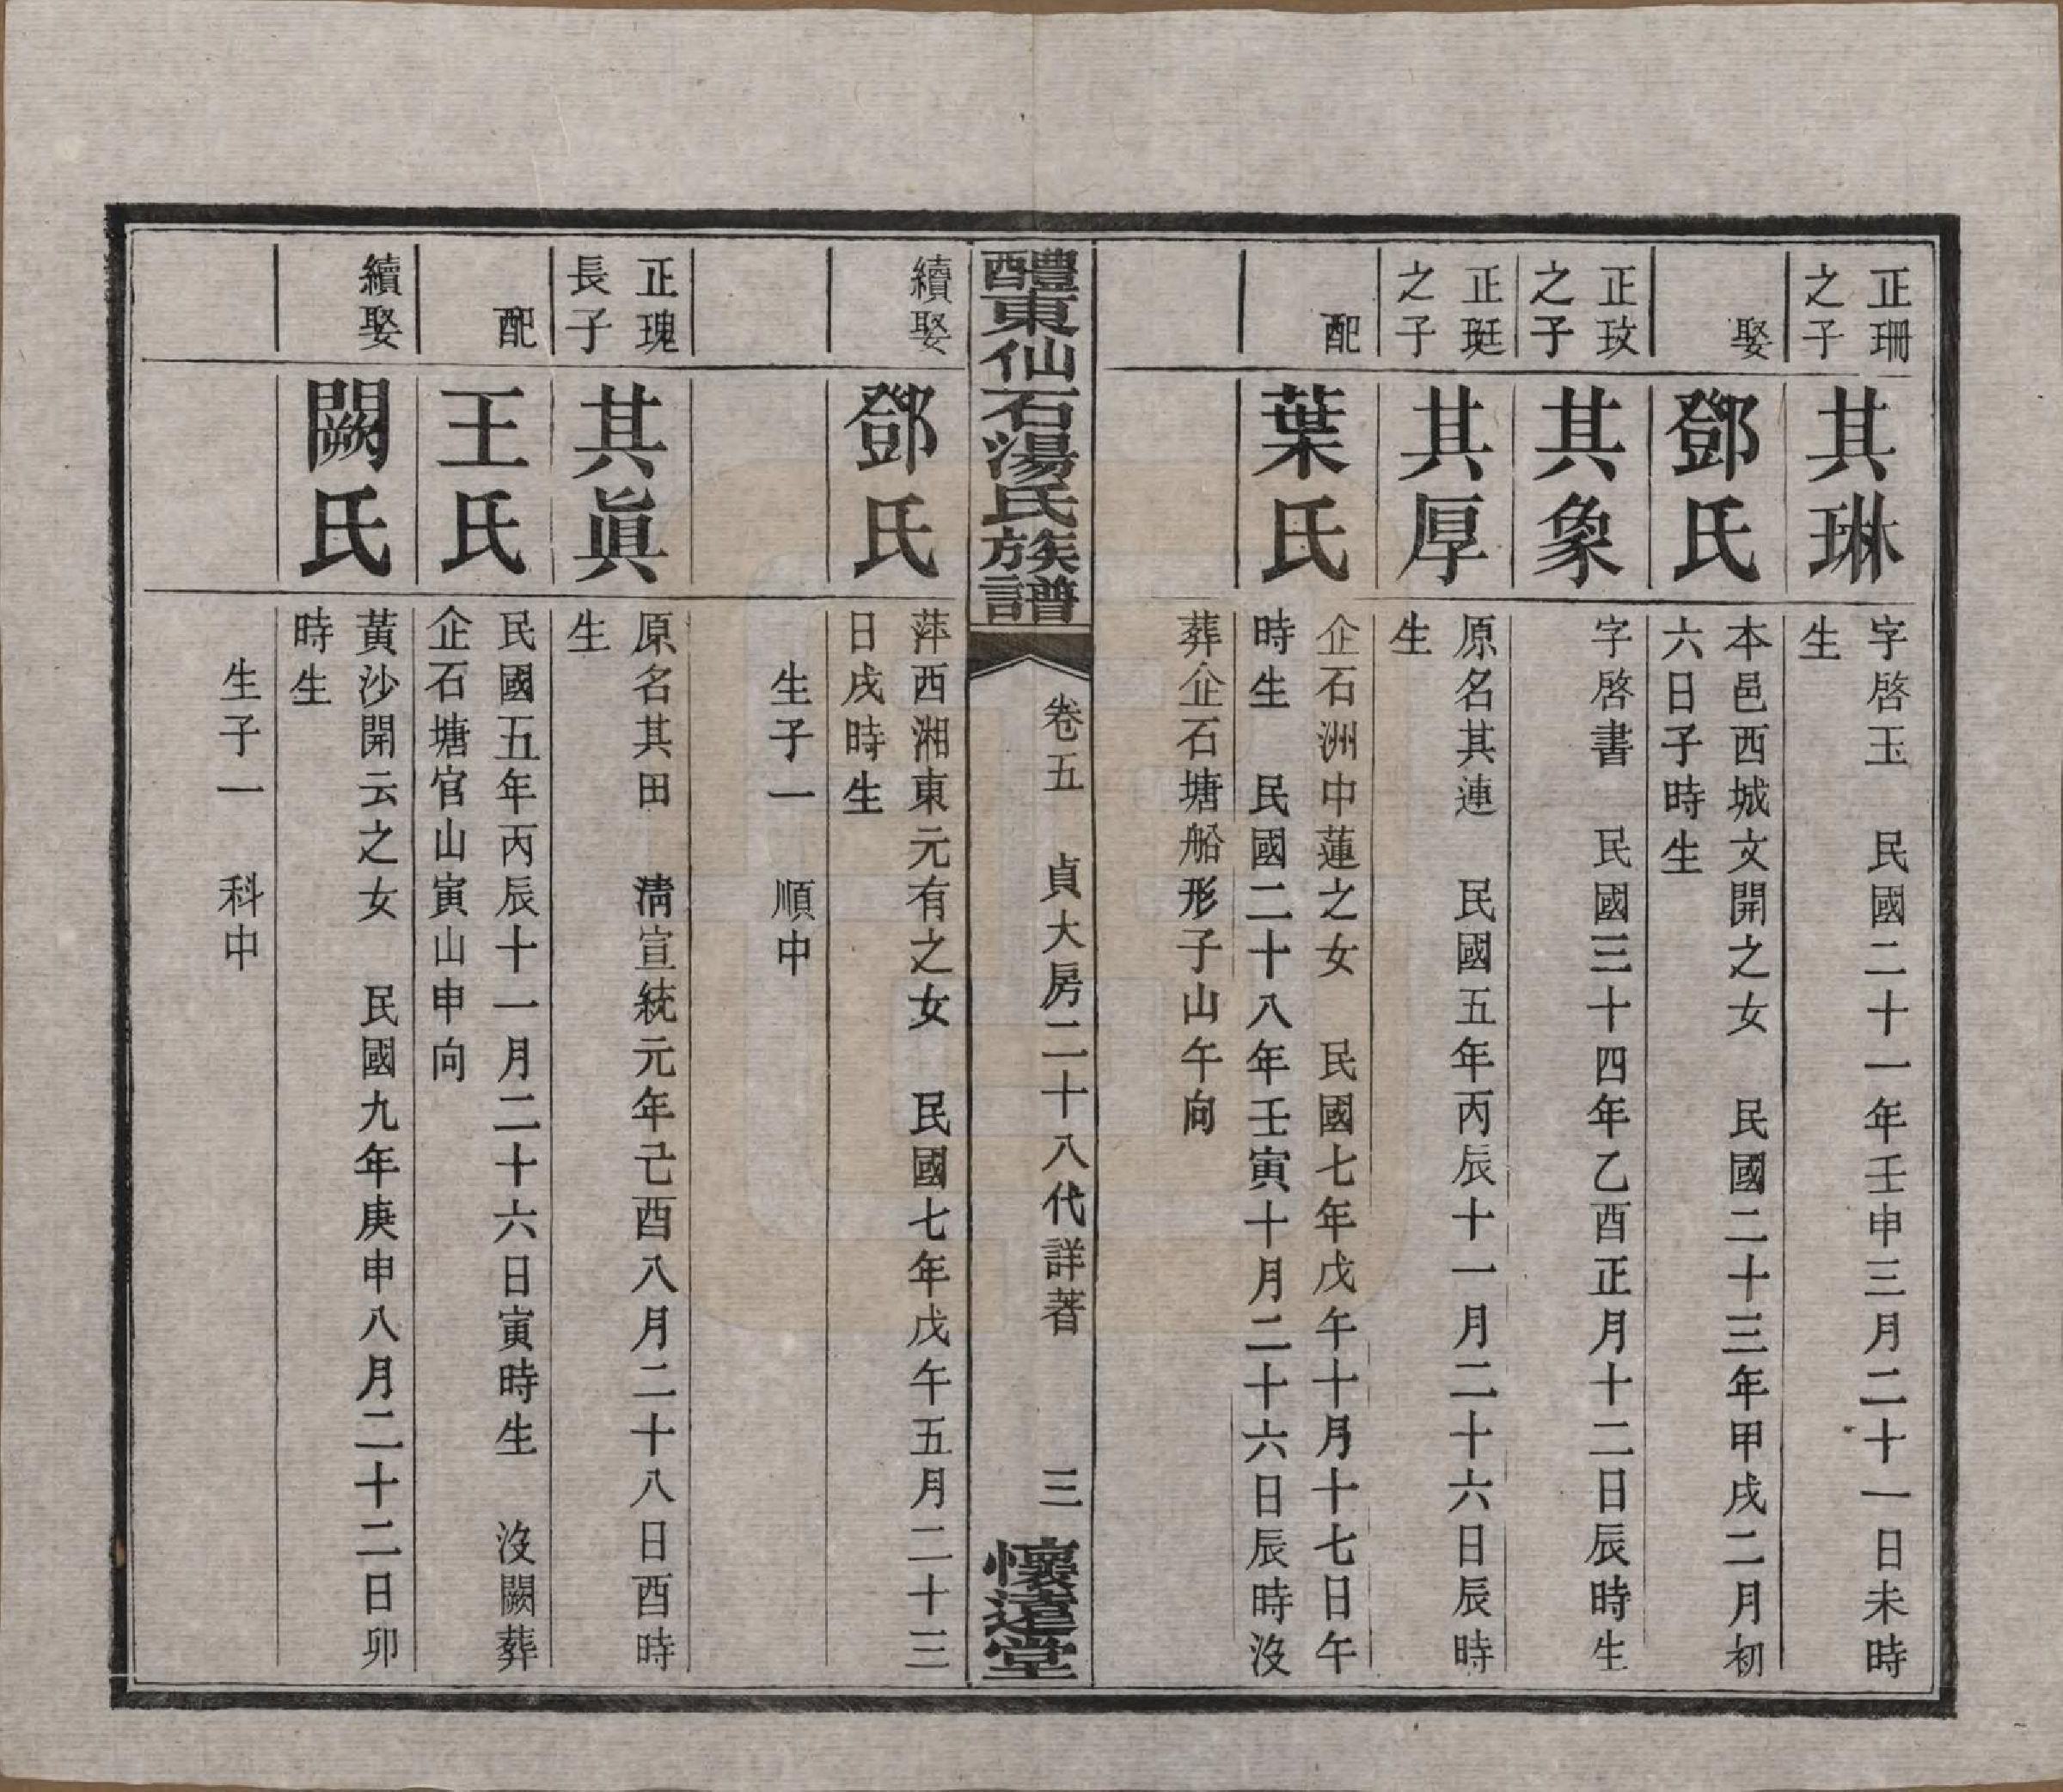 正珊
之子
其琳
字啓玉　民國二十一年壬申三月二十一日未時
生
娶
鄧氏
本邑西城文開之女　民國二十三年甲戌二月初
六日子時生
正玟
之子
其象
字啓書　民國三十四年乙酉正月十二日辰時生
正珽
之子
其厚
原名其連　民國五年丙辰十一月二十六日辰時
生
配
葉氏
企石洲中蓮之女　民國七年戊午十月十七日午
時生　民國二十八年壬寅十月二十六日辰時沒
葬企石塘船形子山午向
醴東仙石湯氏族譜
卷五　貞大房二十八代詳著　三
懷遠堂
續娶
鄧氏
萍西湘東元有之女　民國七年戊午五月二十三
日戌時生
生子一　順中
正瑰
長子
其眞
原名其田　清宣統元年己酉八月二十八日酉時
生
配
王氏
民國五年丙辰十一月二十六日寅時生　沒闕葬
企石塘官山寅山申向
續娶
闕氏
黃沙開云之女　民國九年庚申八月二十二日卯
時生
生子一　科中